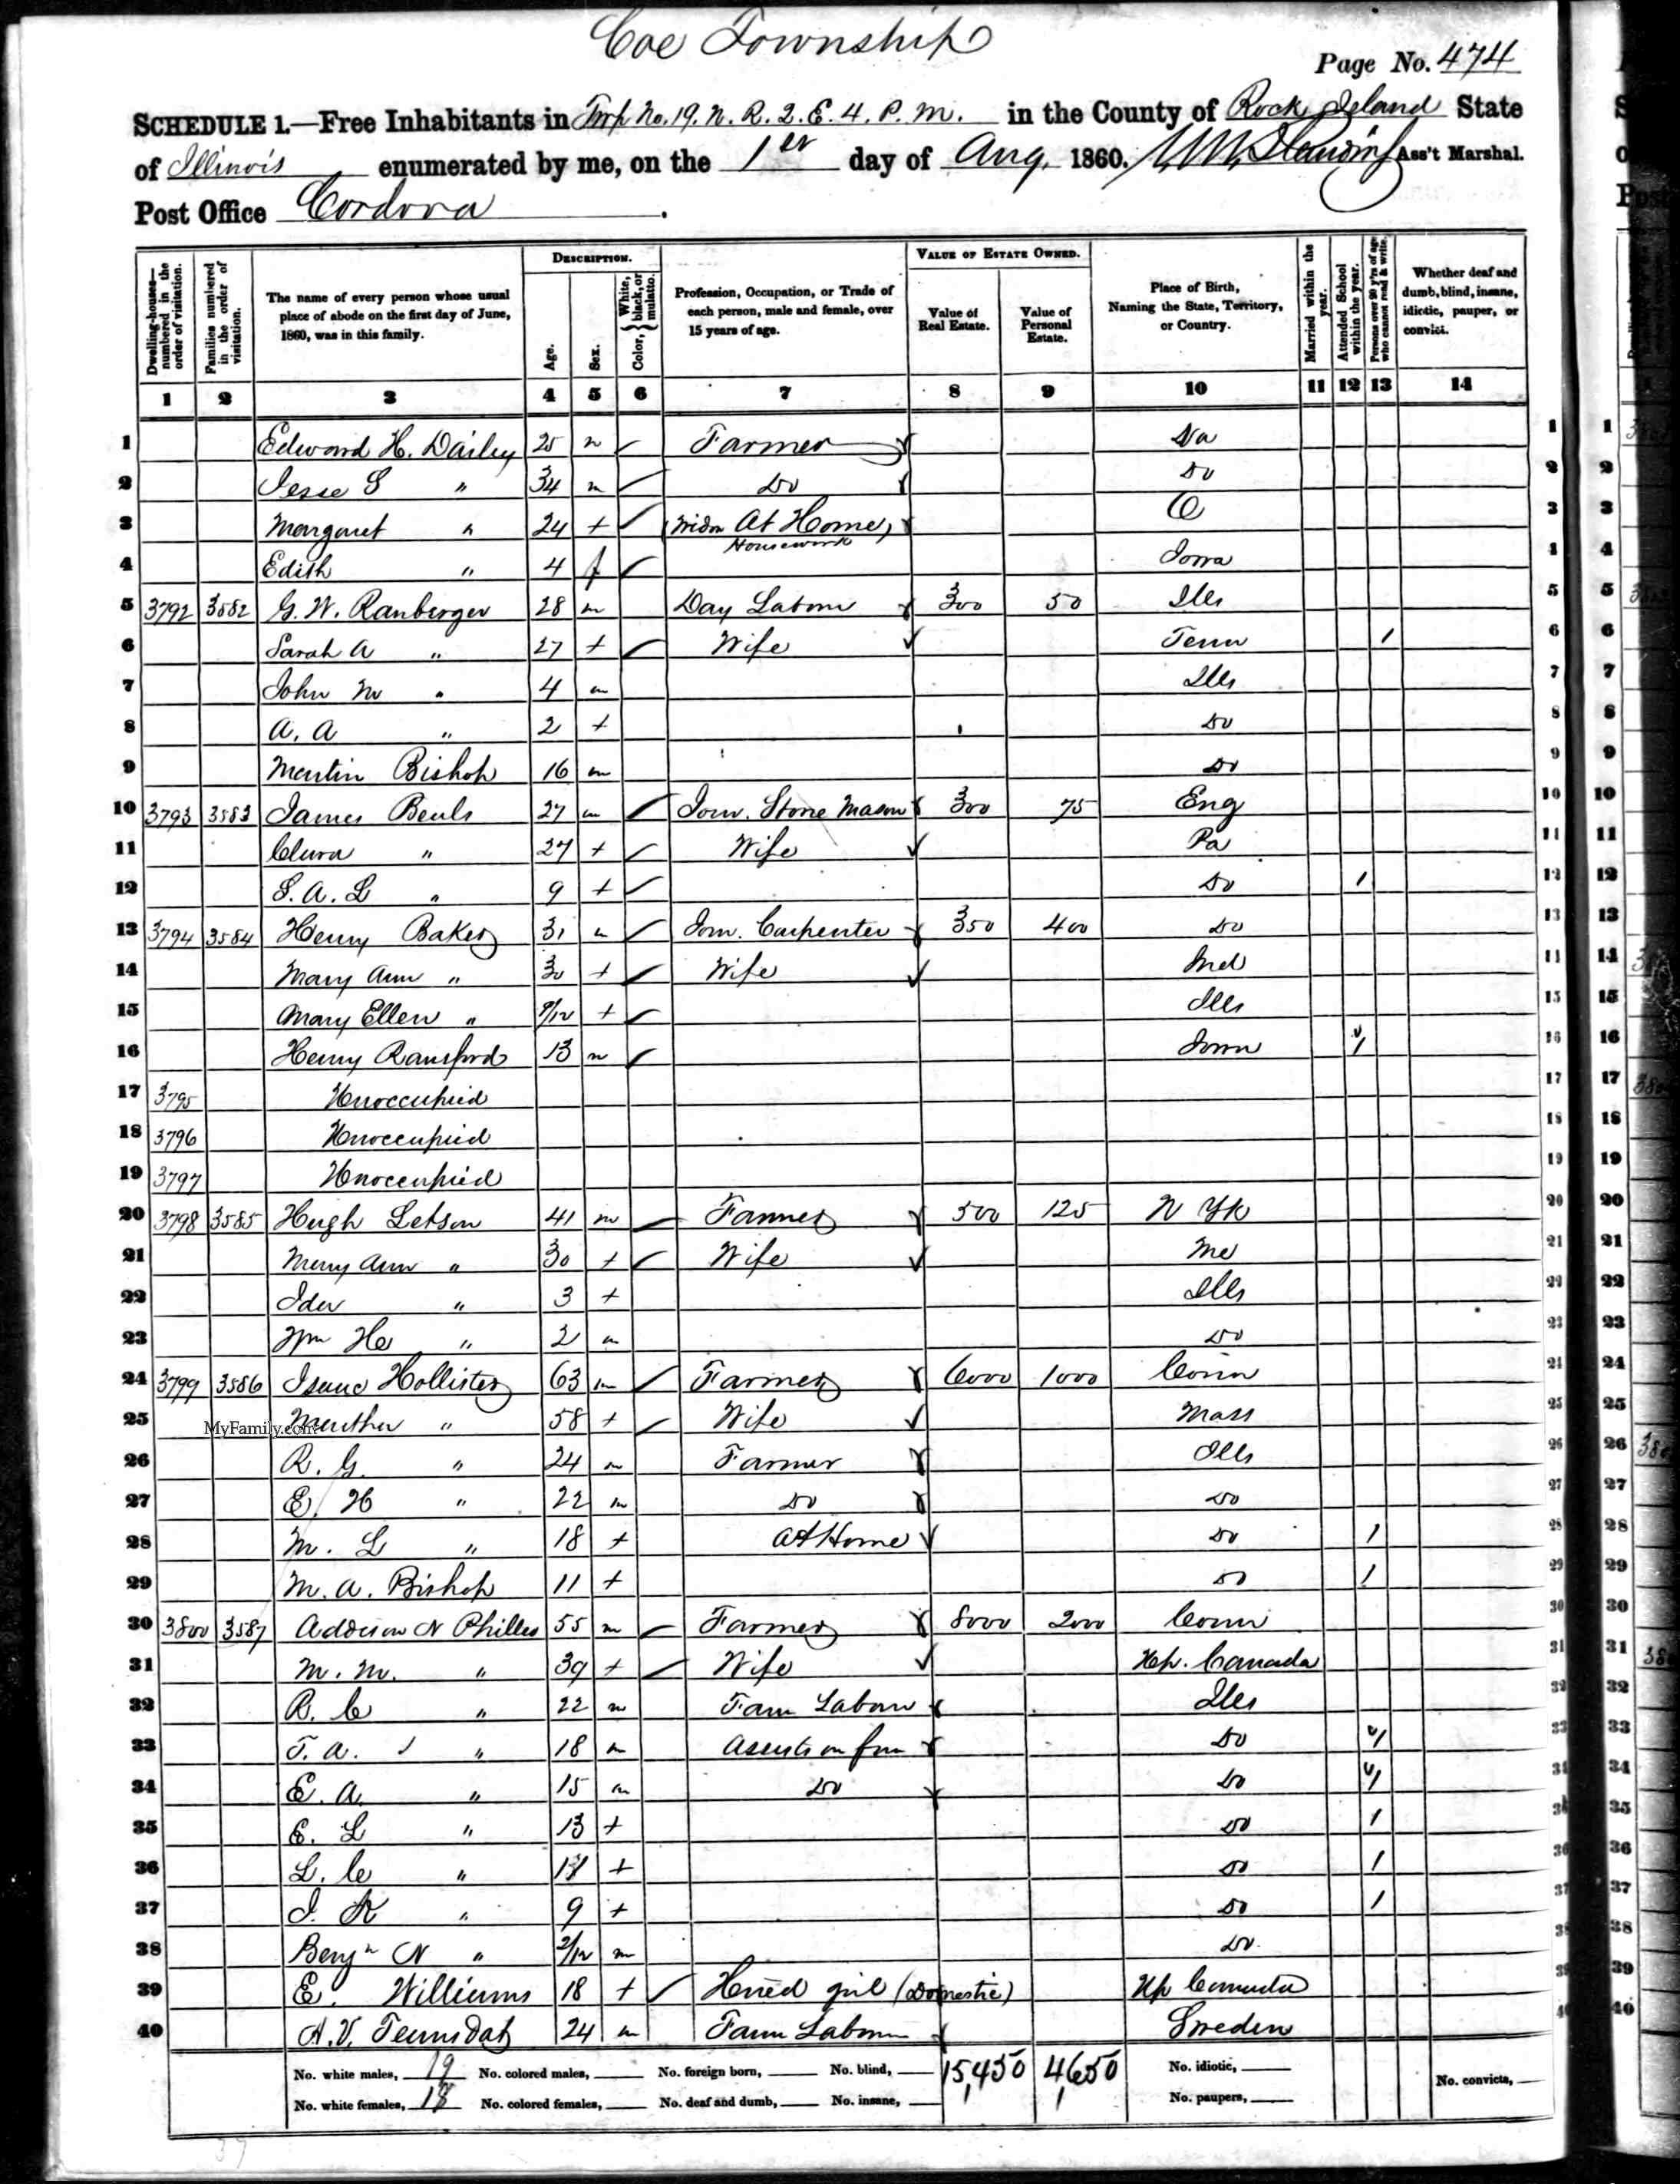 Coe Township
Page No. 474
SCHEDULE 1.—Free Inhabitants in Twp No. 19. N. R. 2. E. 4. P. M. in the County of Rock Island State
of Illinois enumerated by me, on the 1st day of Aug. 1860. Ass't Marshal.
Post Office Cordova.
Dwelling-houses—numbered in the order of visitation.
Families numbered in the order of visitation.
The name of every person whose usual place of abode on the first day of June, 1860, was in this family.
DESCRIPTION.
Age.
Sex.
Color, White, black, or mulatto.
Profession, Occupation, or Trade of each person, male and female, over 15 years of age.
VALUE OF ESTATE OWNED.
Value of Real Estate.
Value of Personal Estate.
Place of Birth, Naming the State, Territory, or Country.
Married within the year.
Attended School within the year.
Persons over 20 y'rs of age who cannot read & write.
Whether deaf and dumb, blind, insane, idiotic, pauper, or convict.
1 2 3 4 5 6 7 8 9 10 11 12 13 14
1 Edward H. Dailey 25 m Farmer Va 1
2 Jesse S " 34 m Do Do 2
3 Margaret " 24 + (Widow At Home) Housework O 3
4 Edith " 4 f Iowa 4
5 3792 3582 G. W. Ranberger 28 m Day Labour 300 50 Ills 5
6 Sarah A " 27 + Wife Tenn / 6
7 John M " 4 m Ills 7
8 A. A " 2 + Do 8
9 Martin Bishop 16 m Do 9
10 3793 3583 James Beals 27 m Jour. Stone Mason 300 75 Eng 10
11 Clara " 27 + Wife Pa 11
12 S. A. L " 9 + Do / 12
13 3794 3584 Henry Baker 31 m Jour. Carpenter 350 400 Do 13
14 Mary Ann " 30 + Wife Ind 14
15 Mary Ellen " 9/12 + Ills 15
16 Henry Ransford 13 m Iowa / 16
17 3795 Unoccupied 17
18 3796 Unoccupied 18
19 3797 Unoccupied 19
20 3798 3585 Hugh Letson 41 m Farmer 500 125 N Yk 20
21 Mary Ann " 30 + Wife Me 21
22 Ida " 3 + Ills 22
23 Wm H " 2 m Do 23
24 3799 3586 Isaac Hollister 63 m Farmer 6000 1000 Conn 24
25 Martha " 58 + Wife Mass 25
MyFamily.com
26 R. G. " 24 m Farmer Ills 26
27 E. H " 22 m Do Do 27
28 M. L " 18 + At Home Do / 28
29 M. A. Bishop 11 + Do / 29
30 3800 3587 Addison N Philleo 55 m Farmer 8000 2000 Conn 30
31 M. M. " 39 + Wife Up. Canada 31
32 R. C " 22 m Farm Labour Ills 32
33 T. A. " 18 m Assists on farm Do / 33
34 E. A. " 15 m Do Do / 34
35 E. L " 13 + Do / 35
36 L. C " 11 + Do / 36
37 I. K " 9 + Do / 37
38 Benjn N " 2/12 m Do 38
39 E. Williams 18 + Hired girl (Domestic) Up Canada 39
40 24 m Farm Labour Sweden 40
No. white males, 19 No. colored males, No. foreign born, No. blind, 15,450 4,650 No. idiotic, No. convicts,
No. white females, 18 No. colored females, No. deaf and dumb, No. insane, No. paupers,